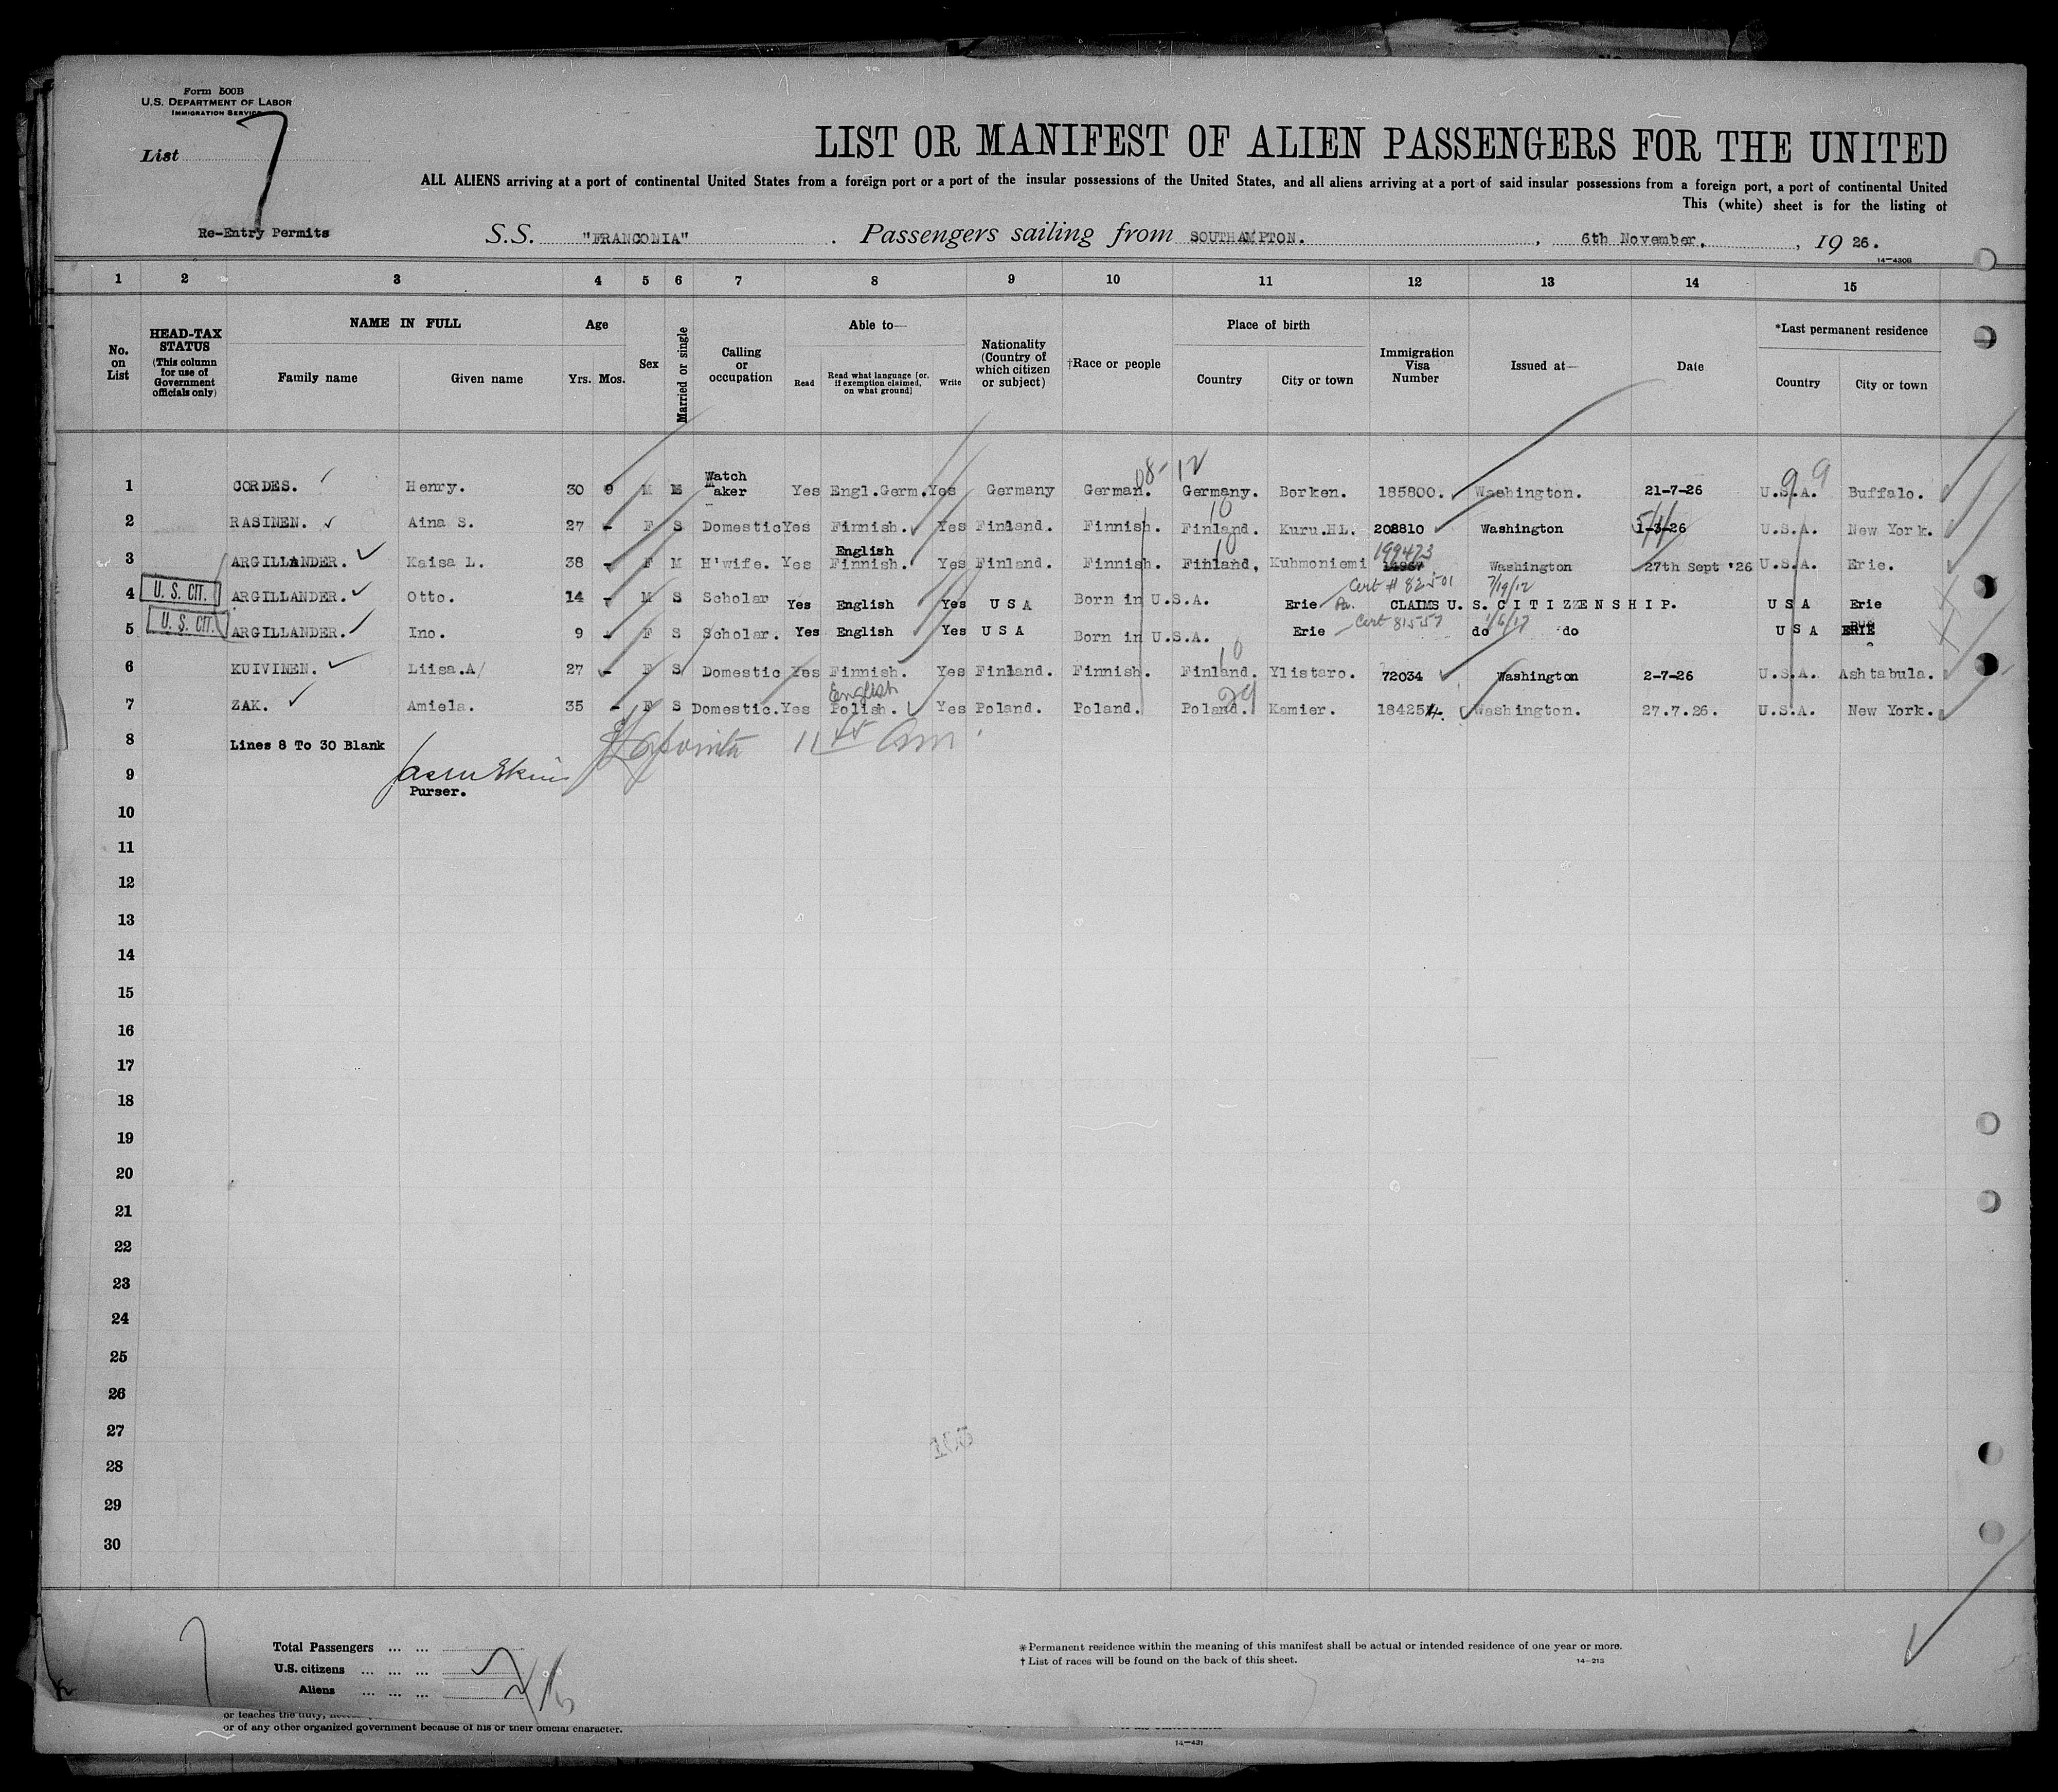 Form 500B
U.S. DEPARTMENT OF LABOR
IMMIGRATION SERVICE
List 7
LIST OR MANIFEST OF ALIEN PASSENGERS FOR THE UNITED
ALL ALIENS arriving at a port of continental United States from a foreign port or a port of the insular possessions of the United States, and all aliens arriving at a port of said insular possessions from a foreign port, a port of continental United
This (white) sheet is for the listing of
Re-Entry Permits S.S. "FRANCONIA" . Passengers sailing from SOUTHAMPTON. , 6th November. , 19 26.
14-430B
1 2 3 4 5 6 7 8 9 10 11 12 13 14 15
No. on List
HEAD-TAX STATUS (This column for use of Government officials only)
NAME IN FULL
Family name Given name
Age
Yrs. Mos.
Sex
Married or single
Calling or occupation
Able to—
Read Read what language [or, if exemption claimed, on what ground] Write
Nationality (Country of which citizen or subject)
†Race or people
Place of birth
Country City or town
Immigration Visa Number
Issued at—
Date
*Last permanent residence
Country City or town
08-12
9 9
1 CORDES. Henry. 30 9 M M Watch Maker Yes Engl.Germ. Yes Germany German. Germany. Borken. 185800. Washington. 21-7-26 U.S.A. Buffalo.
10
2 RASINEN. Aina S. 27 - F S Domestic Yes Finnish. Yes Finland. Finnish. Finland. Kuru.HL. 208810 Washington 1-3-26 U.S.A. New York.
English
10 199473
3 ARGILLANDER. Kaisa L. 38 - F M H'wife. Yes Finnish. Yes Finland. Finnish. Finland, Kuhmoniemi Washington 27th Sept '26 U.S.A. Erie.
Cert # 82501 7/19/12
U. S. CIT. 4 ARGILLANDER. Otto. 14 - M S Scholar Yes English Yes U S A Born in U.S.A. Erie Pa. CLAIMS U. S. C I T I Z E N S H I P. U S A Erie
Cert 81557 1/6/17
U. S. CIT. 5 ARGILLANDER. Ino. 9 - F S Scholar. Yes English Yes U S A Born in U.S.A. Erie do do U S A ERIE
10
6 KUIVINEN. Liisa.A/ 27 - F S Domestic Yes Finnish. Yes Finland. Finnish. Finland. Ylistaro. 72034 Washington 2-7-26 U.S.A. Ashtabula.
English
29
7 ZAK. Amiela. 35 - F S Domestic. Yes Polish. Yes Poland. Poland. Poland. Kamier. 184254. Washington. 27.7.26. U.S.A. New York.
8 Lines 8 To 30 Blank
9
Purser.
10
11
12
13
14
15
16
17
18
19
20
21
22
23
24
25
26
27
28
29
30
Total Passengers ... ...
U.S. citizens ... ... ...
Aliens ... ... ...
*Permanent residence within the meaning of this manifest shall be actual or intended residence of one year or more.
† List of races will be found on the back of this sheet. 14-213
or teaches the duty,
or of any other organized government because of his or their official character.
14-431